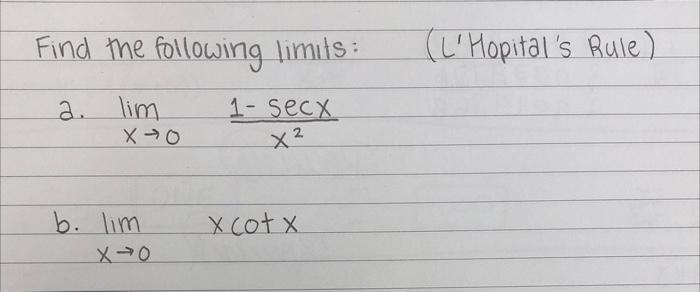 Find the following limits: (L'Hopital's Rule)
a. lim x→0 1 - sec x / x²
b. lim x→0 x cot x